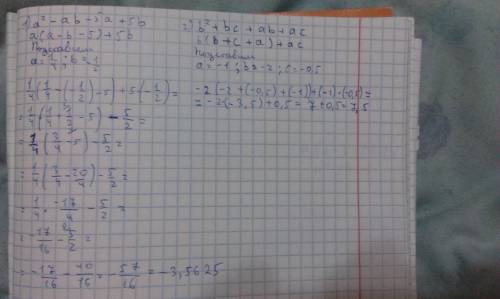 1) a² - ab - 5a + 5b
a(a - b - 5) + 5b
Подставим
a = 1/4 ; b = -1/2
1/4 (1/4 - (-1/2) - 5) + 5(-1/2) =
= 1/4 (1/4 + 1/2 - 5) - 5/2 =
= 1/4 (3/4 - 5) - 5/2 =
= 1/4 (3/4 - 20/4) - 5/2 =
= 1/4 · -17/4 - 5/2 =
= -17/16 - 5/2 =
= -17/16 - 40/16 = -57/16 = -3,5625
2) b² + bc + ab + ac
b(b + c + a) + ac
Подставим
a = -1 ; b = -2 ; c = -0,5
-2 (-2 + (-0,5) + (-1)) + (-1) · (-0,5) =
= -2(-3,5) + 0,5 = 7 + 0,5 = 7,5